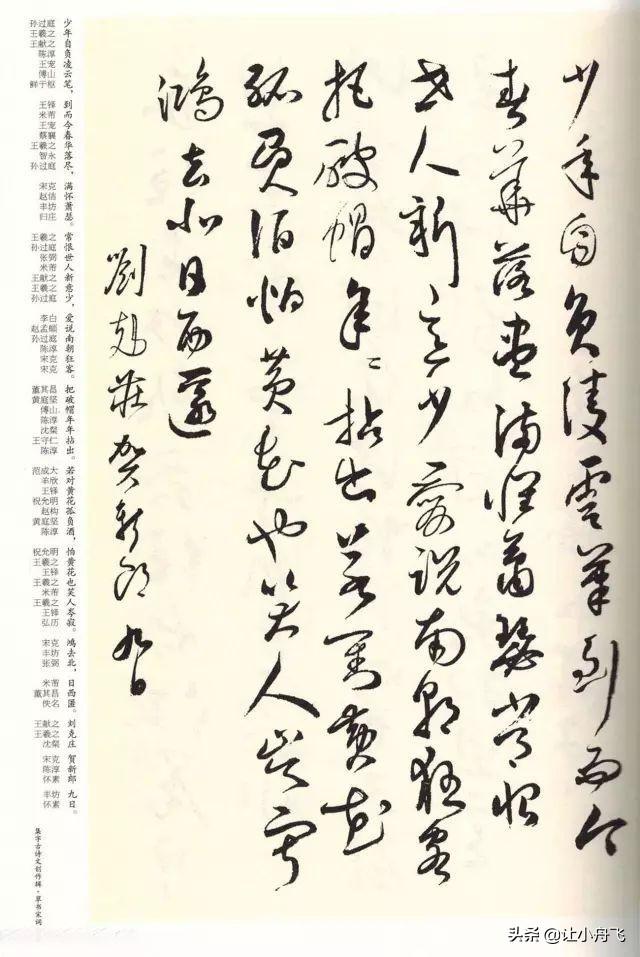 少年自負陵雲筆到而今
春華落盡滿懷蕭瑟常恨
世人新意少愛說南朝狂客
把破帽年々拈出若對黄花
孤負酒怕黄花也笑人岑寂
鴻去北日西匿
劉克莊賀新郎 九日
少年自负凌云笔，到而今春华落尽，满怀萧瑟。常恨世人新意少，爱说南朝狂客。把破帽年年拈出。若对黄花孤负酒，怕黄花也笑人岑寂。鸿去北，日西匿。刘克庄 贺新郎 九日。
孙过庭 王羲之 王献之 陈淳 王宠 傅山 鲜于枢 王铎 米芾 王宠 蔡襄 王羲之 智永 孙过庭 宋克 赵佶 丰坊 归庄 王羲之 孙过庭 张弼 米芾 王献之 王羲之 孙过庭 李白 赵孟頫 孙过庭 陈淳 宋克 宋克 董其昌 黄庭坚 傅山 陈淳 沈粲 王守仁 陈淳 范成大 羊欣 王铎 祝允明 赵构 黄庭坚 陈淳 祝允明 王羲之 王铎 王羲之 米芾 王羲之 王铎 弘历 宋克 丰坊 张弼 米芾 董其昌 佚名 王献之 王羲之 沈粲 宋克 陈淳 怀素 丰坊 怀素
集字古诗文创作辑·草书宋词
头条 @让小舟飞